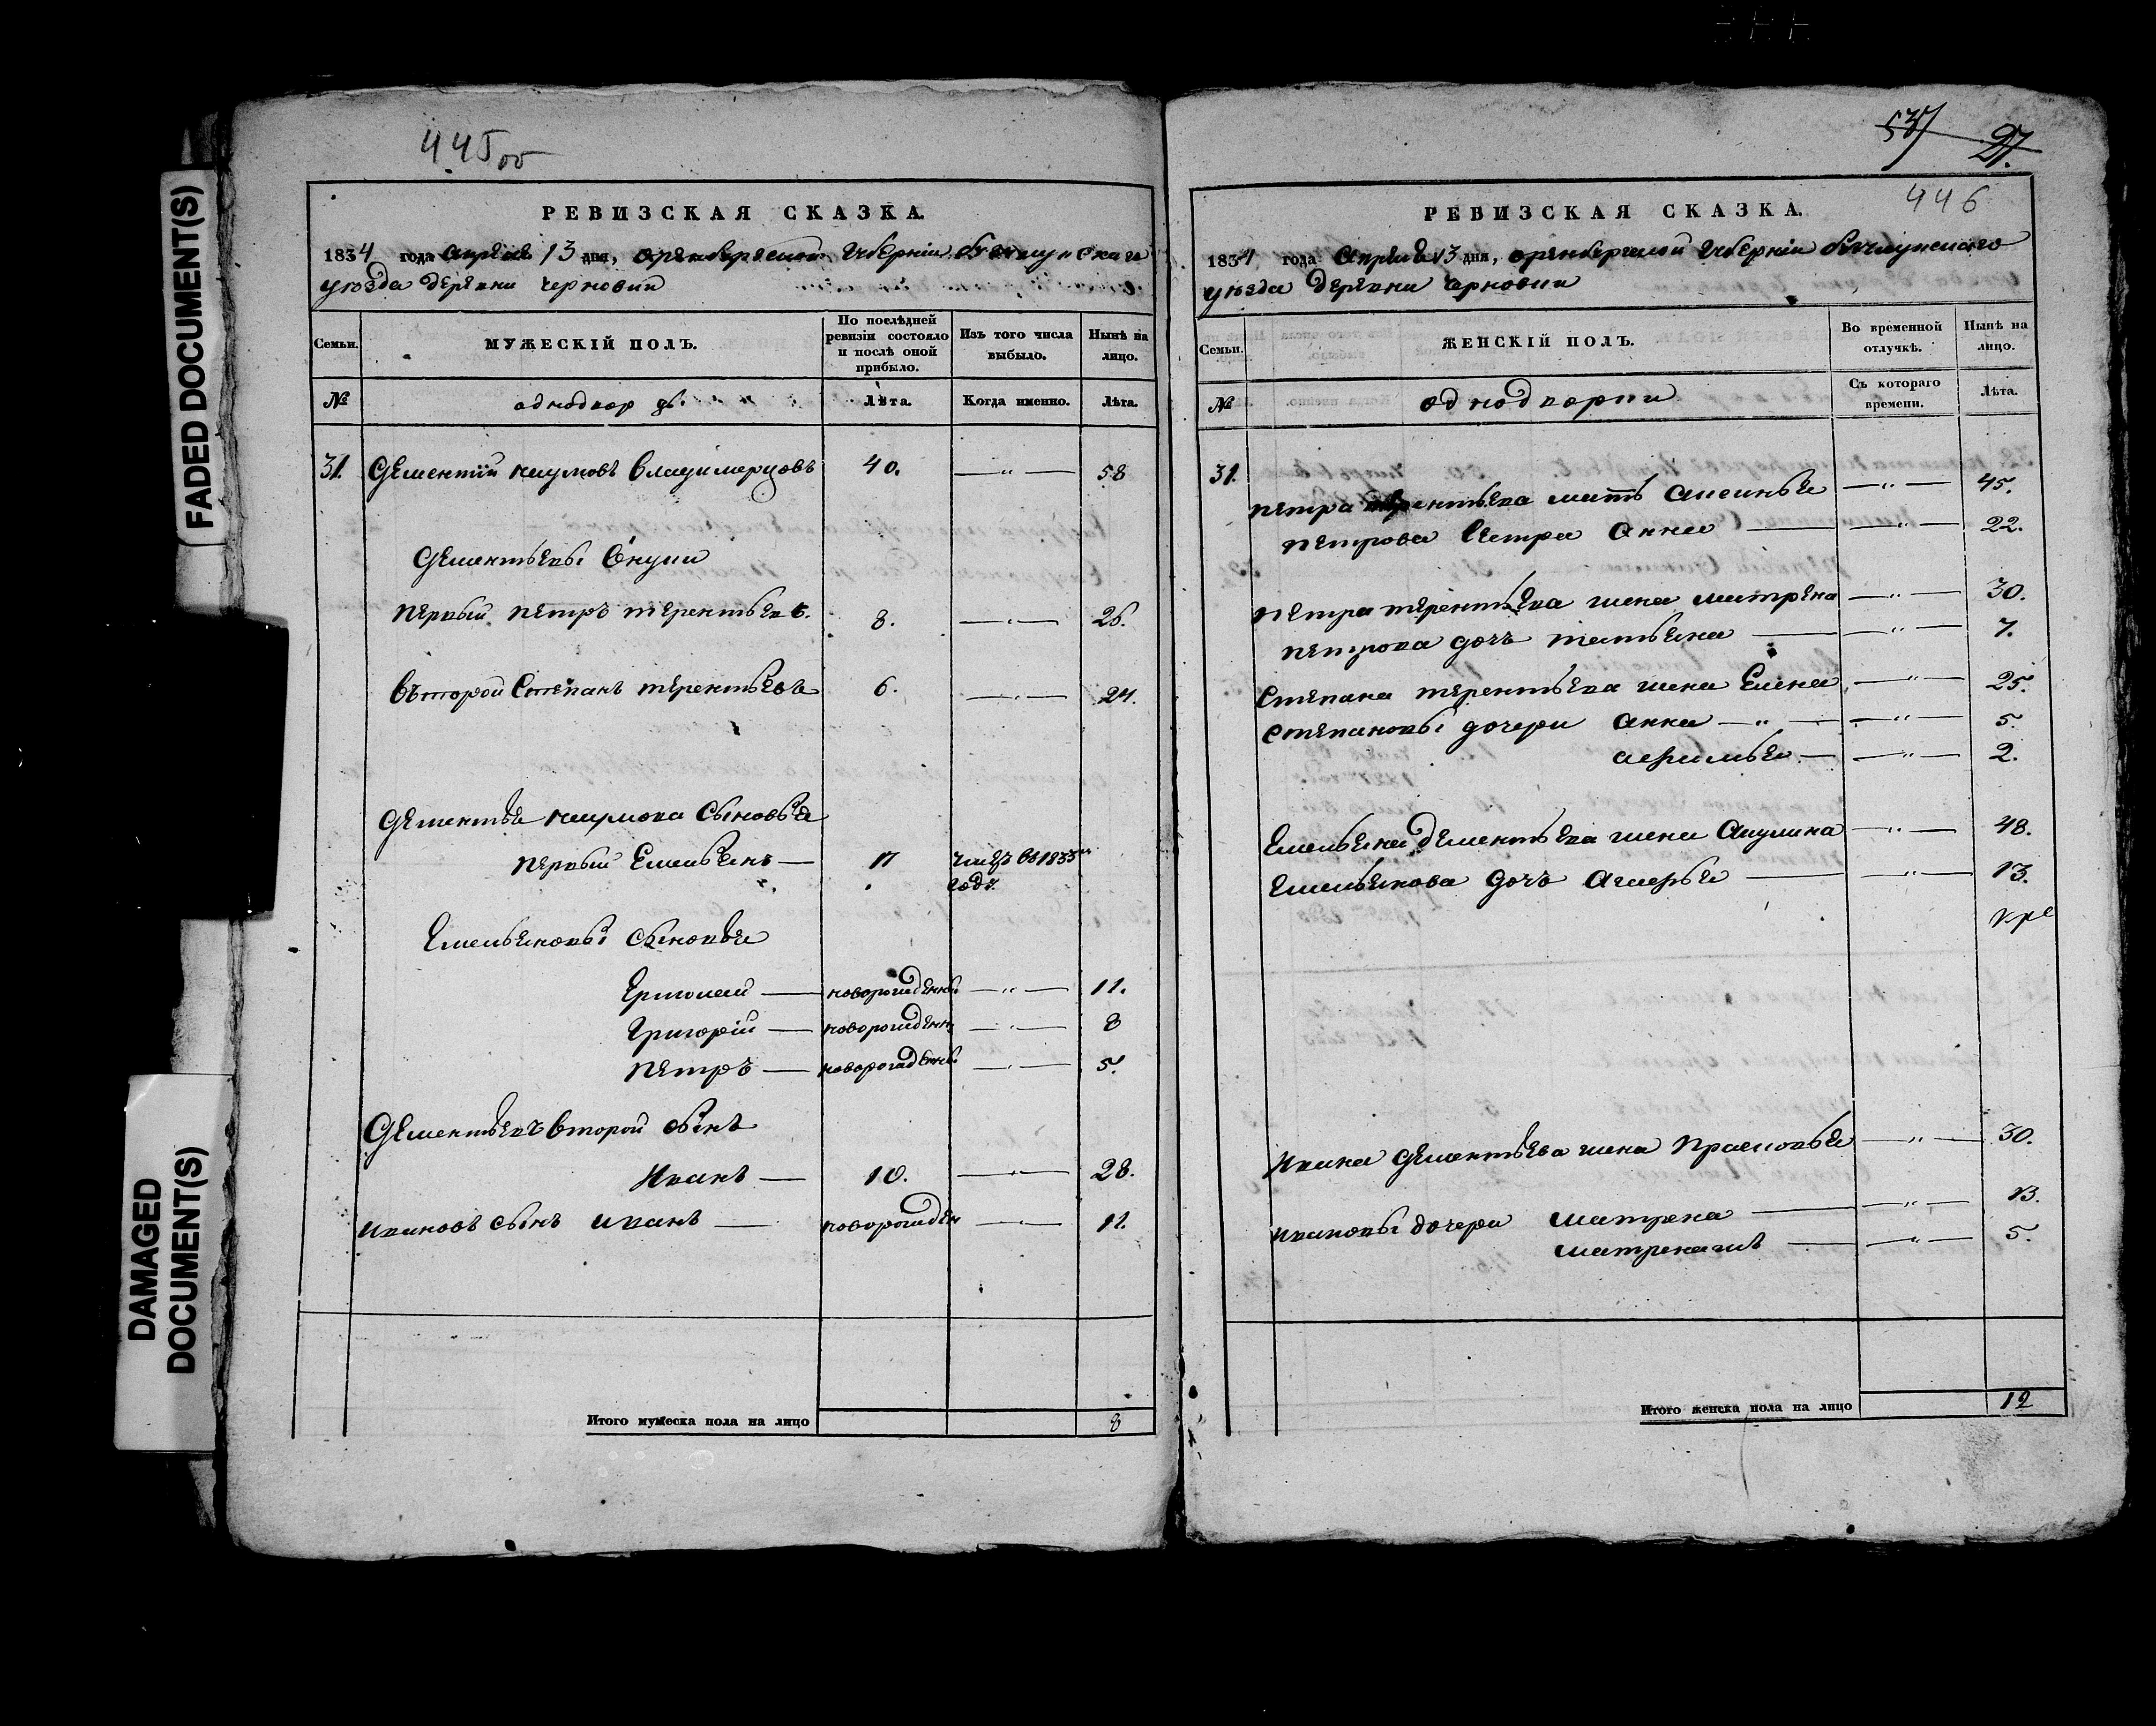 FADED DOCUMENT(S)
DAMAGED DOCUMENT(S)
445об
РЕВИЗСКАЯ СКАЗКА.
1834 года апреля 13 дня, оренбургской губернии
уезда деревни Черновки
Семьи.
МУЖЕСКІЙ ПОЛЪ.
По послѣдней ревизіи состояло и послѣ оной прибыло.
Изъ того числа выбыло.
Нынѣ на лицо.
№
однодворцы.
Лѣта.
Когда именно.
Лѣта.
31. Дементий наумовъ владимерцовъ 40. — " — 58
Дементьевы внуки
первый петръ терентьевъ. 8. — " — 26.
второй степанъ терентьевъ 6. — " — 24.
Дементья наумова сыновья
первый Емельянъ — 17 въ 1833м
году.
Емельяновы сыновья
— новорожденный — " — 11.
Григорій — новорожденн — " — 8
петръ — новорожденны — " — 5.
Дементьевъ второй сынъ
Иванъ — 10. — " — 28.
ивановъ сынъ иванъ — новорожден — " — 11.
Итого мужеска пола на лицо 8
537 27.
446
РЕВИЗСКАЯ СКАЗКА.
1834 года апреля 13 дня, оренбургской губерніи
уезда деревни Черновки
Семьи.
ЖЕНСКІЙ ПОЛЪ.
Во временной отлучкѣ.
Нынѣ на лицо.
№
однодворки
Съ котораго времени.
Лѣта.
31.
петра терентьева мать аксинья — " — 45.
петрова сестра анна — — " — 22.
петра терентьева жена матрена — " — 30.
петрова дочь татьяна — — " — 7.
степана терентьева жена Елена — " — 25.
степановы дочери анна — " — — " — 5.
афимья — — " — 2.
Емельяна дементьева жена акулина — " — 48.
Емельянова дочь — — " — 13.
ивана дементьева жена прасковья — " — 30.
ивановы дочери матрена — — " — 13.
матрена жъ — — " — 5.
Итого женска пола на лицо 12